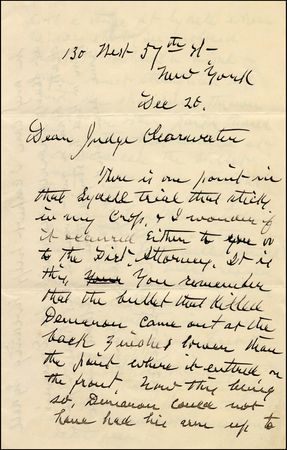 130 West 57th St
New York
Dec 20.
Dear Judge Clearwater
There is one point in
that Lydell trial that sticks
in my Crop, & I wonder if
it occurred Either to you or
to the Dist-Attorney. It is
this, You remember
that the bullet that killed
Demeron came out at the
back 2 inches lower than
the point where it entered on
the front. Now this being
so, Demeron could not
have had his arm up to